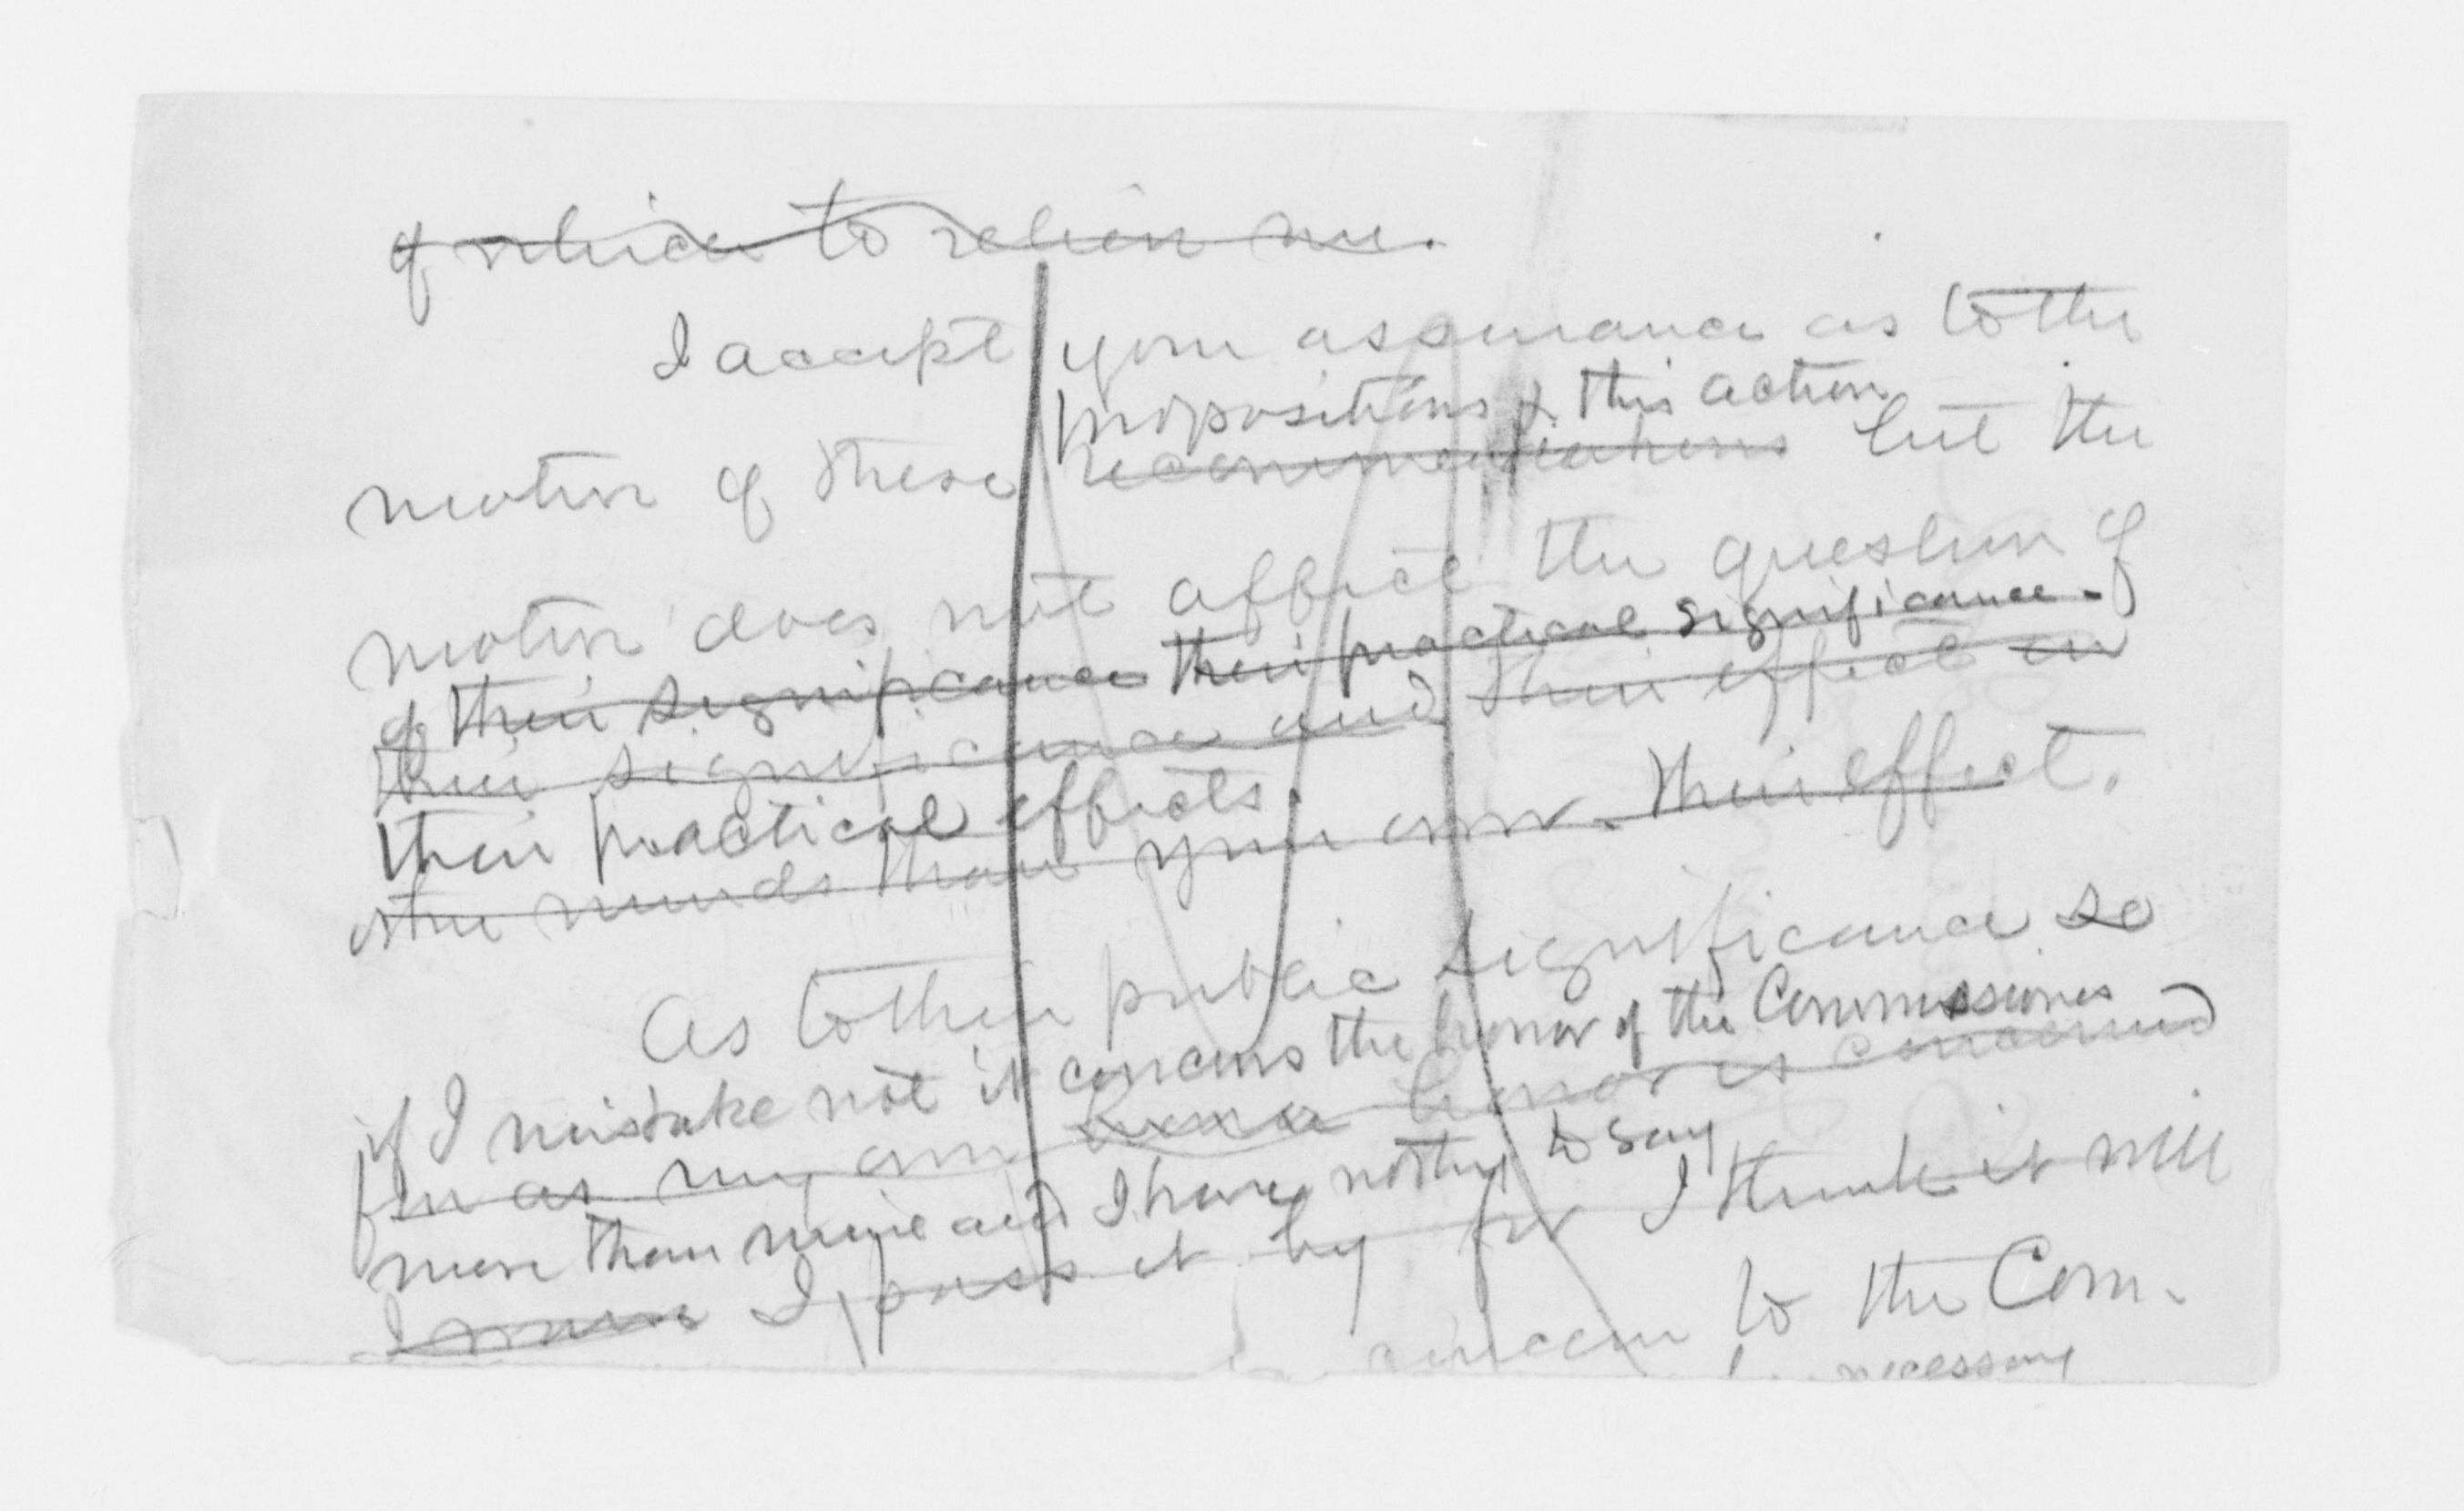 of which to relieve me.
I accept your assurance as to the
propositions & this action
motive of these recommendations but the
motive does not affect the question of
of their significance their practical significance.
their significance and their effect on
their practical effects.
other minds than your own. their effect.
As to their public significance so
if I mistake not it concerns the honor of the Commissioners
far as my own honor is concerned
more than mine and I have nothing to say
I pass it by for I think it will
concern to the Com.
necessary